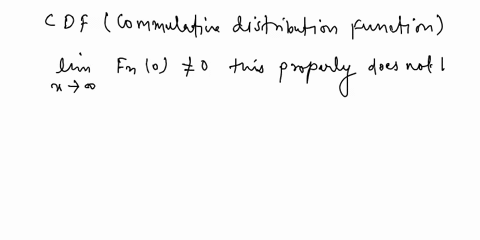 CDF (Commulative distribution function)
lim Fn (0) ≠0 this properly does not
x → ∞